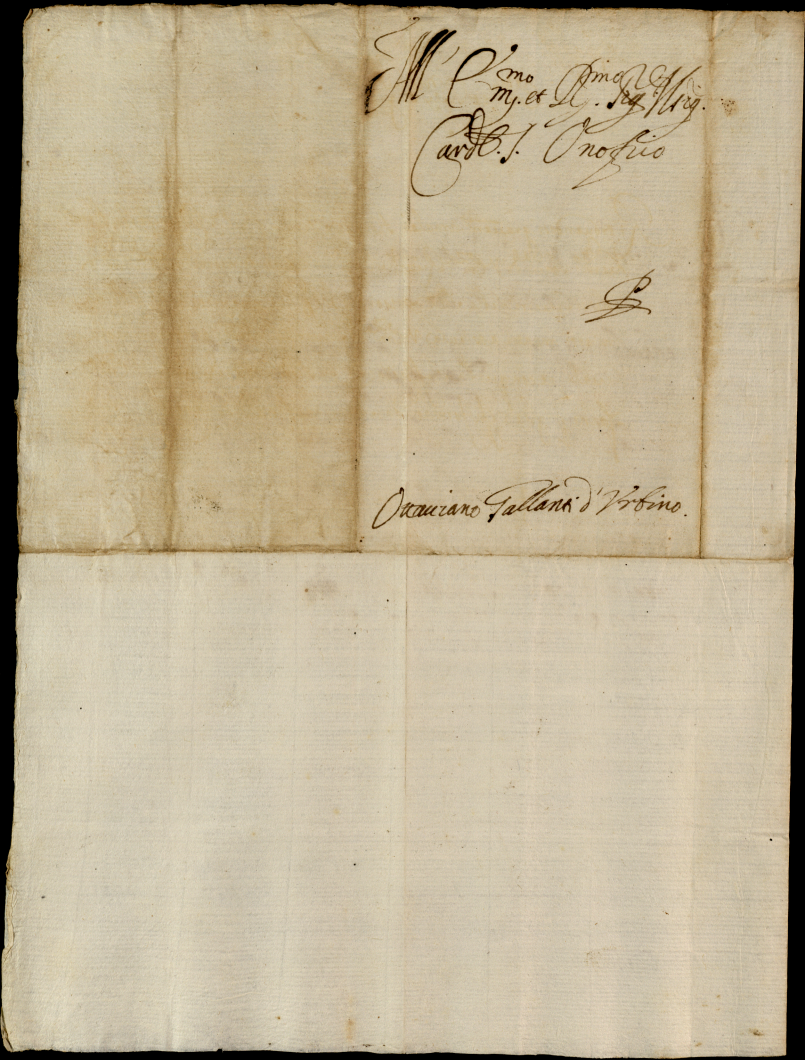 All' E.mo et R.mo Sig.re
Card.le S. Onofrio
P
Ottaviano Tallani d'Urbino.